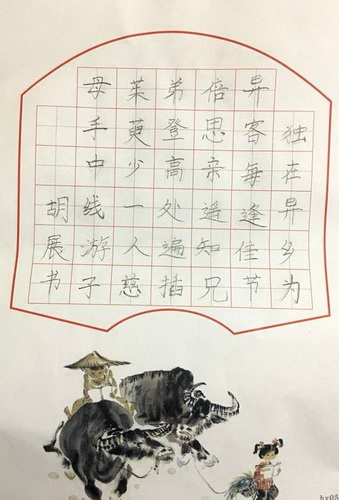 独在异乡为
异客每逢佳节
倍思亲遥知兄
弟登高处遍插
茱萸少一人慈
母手中线游子
胡展书